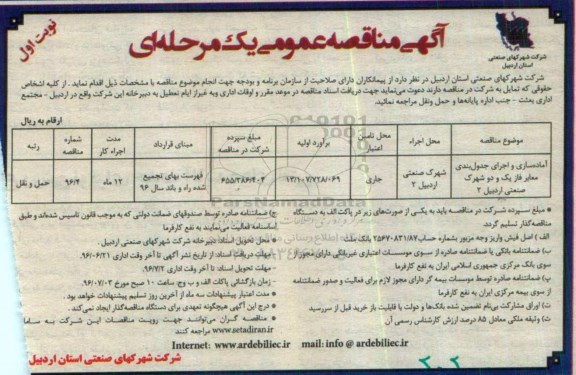 نوبت اول
آگهی مناقصه عمومی یک مرحله‌ای
شرکت شهرکهای صنعتی
استان اردبیل
شرکت شهرکهای صنعتی استان اردبیل در نظر دارد از پیمانکاران دارای صلاحیت از سازمان برنامه و بودجه جهت انجام موضوع مناقصه با مشخصات ذیل اقدام نماید. از کلیه اشخاص
حقوقی که تمایل به شرکت در مناقصه دارند دعوت می‌نماید جهت دریافت اسناد مناقصه در موعد مقرر و اوقات اداری وبه غیراز ایام تعطیل به دبیرخانه این شرکت واقع در اردبیل - مجتمع
اداری بعثت - جنب اداره پایانه‌ها و حمل ونقل مراجعه نمائید.
ارقام به ریال
موضوع مناقصه | محل اجراء | محل تامین اعتبار | برآورد اولیه | مبلغ سپرده شرکت در مناقصه | مبنای قرارداد | مدت اجراء کار | شماره مناقصه | رتبه
آماده‌سازی و اجرای جدول‌بندی معابر فاز یک و دو شهرک صنعتی اردبیل ۲ | شهرک صنعتی اردبیل ۲ | جاری | ۱۳/۱۰۷/۷۲۸/۰۶۹ | ۶۵۵/۳۸۶/۴۰۳ | فهرست بهای تجمیع شده راه و باند سال ۹۶ | ۱۲ ماه | ۹۶/۴ | حمل و نقل
* مبلغ سپرده شرکت در مناقصه باید به یکی از صورت‌های زیر در پاکت الف به دستگاه
مناقصه‌گذار تسلیم گردد.
الف ) اصل فیش واریز وجه مزبور بشماره حساب ۲۵۶۷۰۸۳۱/۸۷ بانک ملت
ب) ضمانتنامه بانکی یا ضمانتنامه صادره از سوی موسسات اعتباری غیربانکی دارای مجوز از
سوی بانک مرکزی جمهوری اسلامی ایران به نفع کارفرما
پ) ضمانتنامه صادره توسط موسسات بیمه گر دارای مجوز لازم برای فعالیت و صدور ضمانتنامه
از سوی بیمه مرکزی ایران به نفع کارفرما
ت) اوراق مشارکت بی‌نام تضمین شده بانک‌ها و دولت با قابلیت باز خرید قبل از سررسید
ث) وثیقه ملکی معادل ۸۵ درصد ارزش کارشناس رسمی آن
ج) ضمانتنامه صادره توسط صندوقهای ضمانت دولتی که به موجب قانون تاسیس شده‌اند و طبق
اساسنامه فعالیت می‌نمایند به نفع کارفرما
* محل تحویل اسناد: دبیرخانه شرکت شهرکهای صنعتی اردبیل.
- مهلت دریافت اسناد: از تاریخ نشر آگهی تا آخر وقت اداری ۹۶/۰۶/۲۱
- مهلت تحویل اسناد: تا آخر وقت اداری ۹۶/۷/۲
- زمان بازگشائی پاکات الف و ب وج: ساعت ۱۰ صبح مورخ ۹۶/۰۷/۰۳
* مدت اعتبار پیشنهادات سه ماه از آخرین روز تسلیم پیشنهادات خواهد بود.
* درج این آگهی هیچگونه تعهدی برای دستگاه مناقصه‌گذار ایجاد نمی‌کند.
* مناقصه گران می‌توانند جهت رویت مناقصات این شرکت به سامانه
www.setadiran.ir مراجعه کنند
Internet: www.ardebiliec.ir mail: info @ ardebiliec.ir
شرکت شهرکهای صنعتی استان اردبیل
ParsNamadData